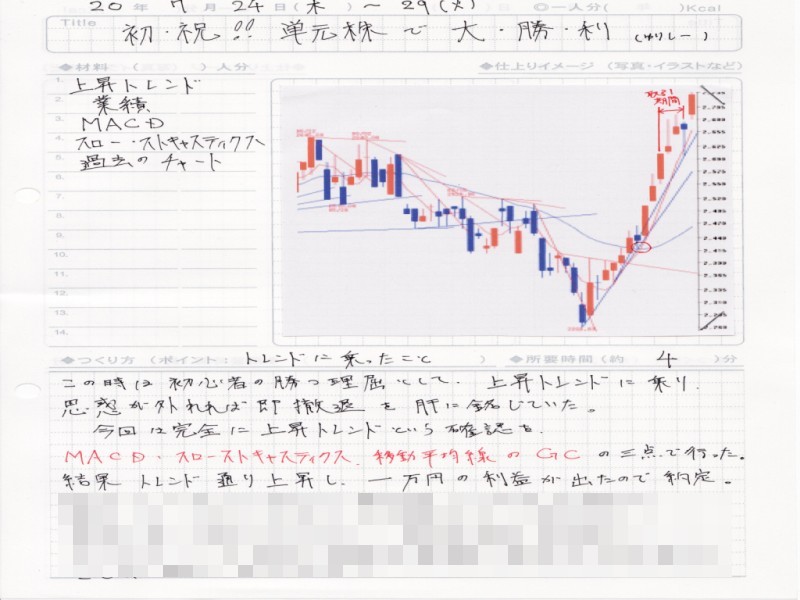 20 年 7 月 24 日(木) ~ 29(火) ◎一人分( )Kcal
Title 初・祝!! 単元株で大・勝・利 (ゆりしー)
◆材料 ( ) 人分
◆仕上りイメージ (写真・イラストなど)
1. 上昇トレンド
2. 業績
3. MACD
4. スロー・ストキャスティクス
5. 過去のチャート
6.
7.
8.
9.
10.
11.
12.
13.
14.
期間
◆つくり方 (ポイント: トレンドに乗ったこと )
◆所要時間(約 4 )分
この時は初心者の勝つ理屈として、上昇トレンドに乗り、
思惑が外れれば即撤退を肝に銘じていた。
今回は完全に上昇トレンドという確認を、
MACD・スローストキャスティクス、移動平均線のGCの三点で行った。
結果トレンド通り上昇し、一万円の利益が出たので約定。